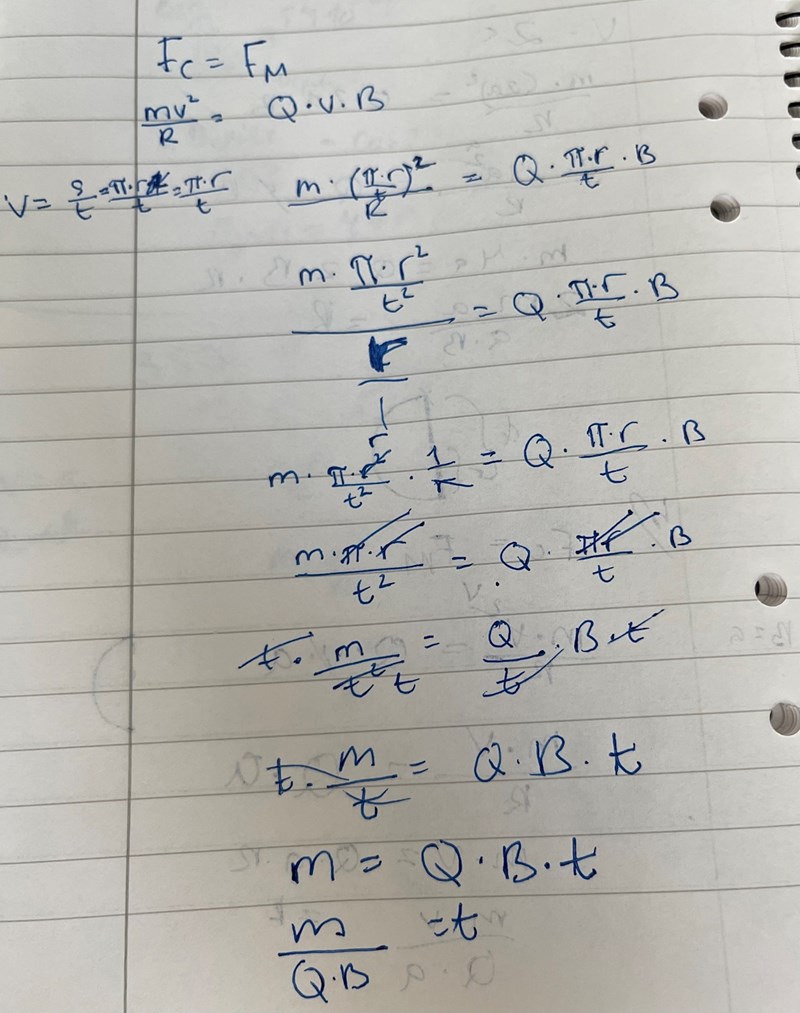 F_C = F_M
mv²/R = Q·v·B
V = s/t = π·r/t = π·r/t m·(π·r/t)²/R = Q·π·r/t·B
m·π·r²/t²/r/1 = Q·π·r/t·B
m·π·r²/t²·1/r = Q·π·r/t·B
m·π·r/t² = Q·πr/t·B
t·m/t² t = Q/t·B·t
t·m/t = Q·B·t
m = Q·B·t
m/Q·B = t